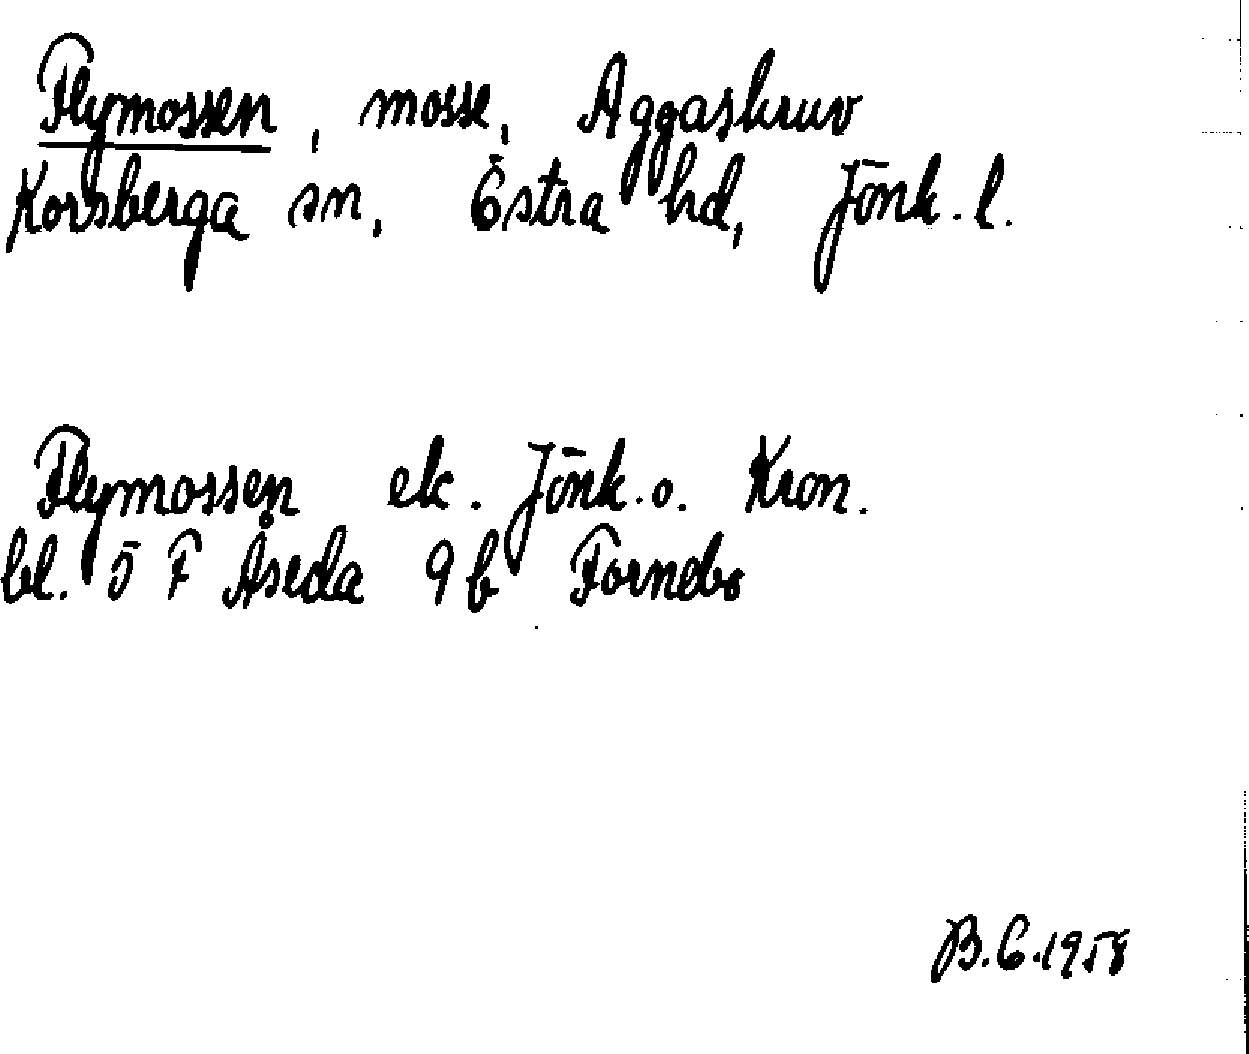 Flymossen, mosse, Aggaskruv
Korsberga sn, Östra hd, Jönk. l.
Flymossen ek. Jönk. o. Kron.
bl. 5 F Åseda 9 b Fornebo
B.G. 1958